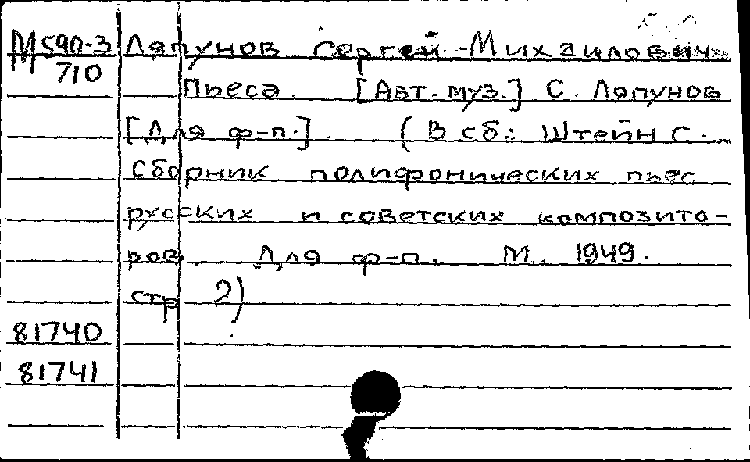 М590-3 Ляпунов Сергей Михайлович
710 Пьеса. [Авт. муз.] С. Ляпунов
[Для ф-п.] (В сб.: Штейн С.
Сборник полифонических пьес
русских и советских компози­то-
ров. Для ф-п. М. 1949.
стр 2)
81740
81741